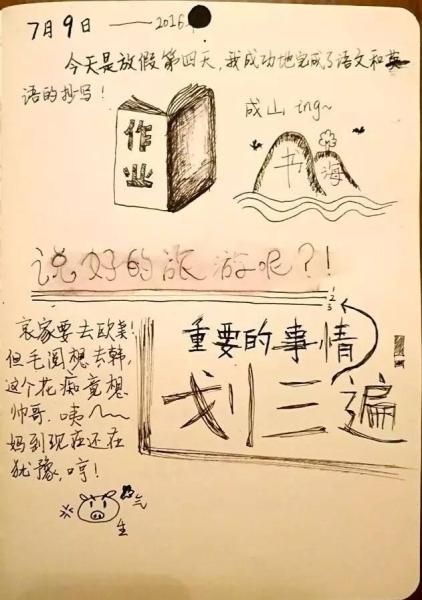 7月9日 —— 2016.
今天是放假第四天,我成功地完成了语文和英
语的抄写!
作业
成山 ing~
书海
说好的旅游呢?!
1
2
3
哀家要去欧美!
但毛圆想去韩,
这个花痴竟想
帅哥.咦~~
妈到现在还在
犹豫,哼!
重要的事情
划三遍
生气